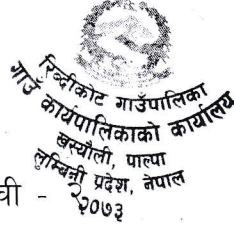 रिब्दीकोट गाउँपालिका
गाउँ कार्यपालिकाको कार्यालय
खस्यौली, पाल्पा
लुम्बिनी प्रदेश, नेपाल
ची -
२०७३